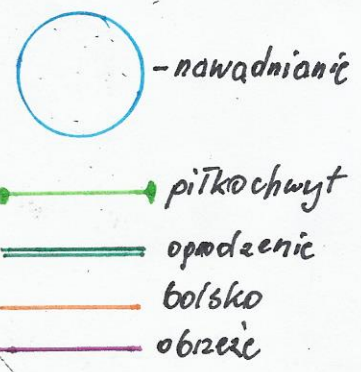 - nawadnianie
piłkochwyt
ogrodzenie
boisko
obrzeże